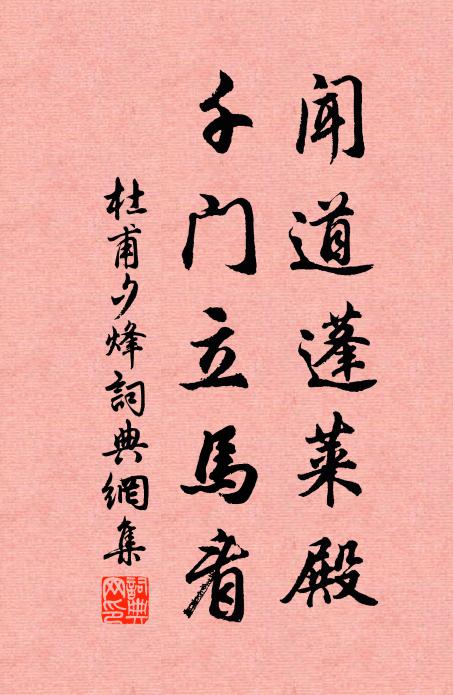 闻道蓬莱殿
千门立馬看
杜甫夕烽詞典網集
詞典网印